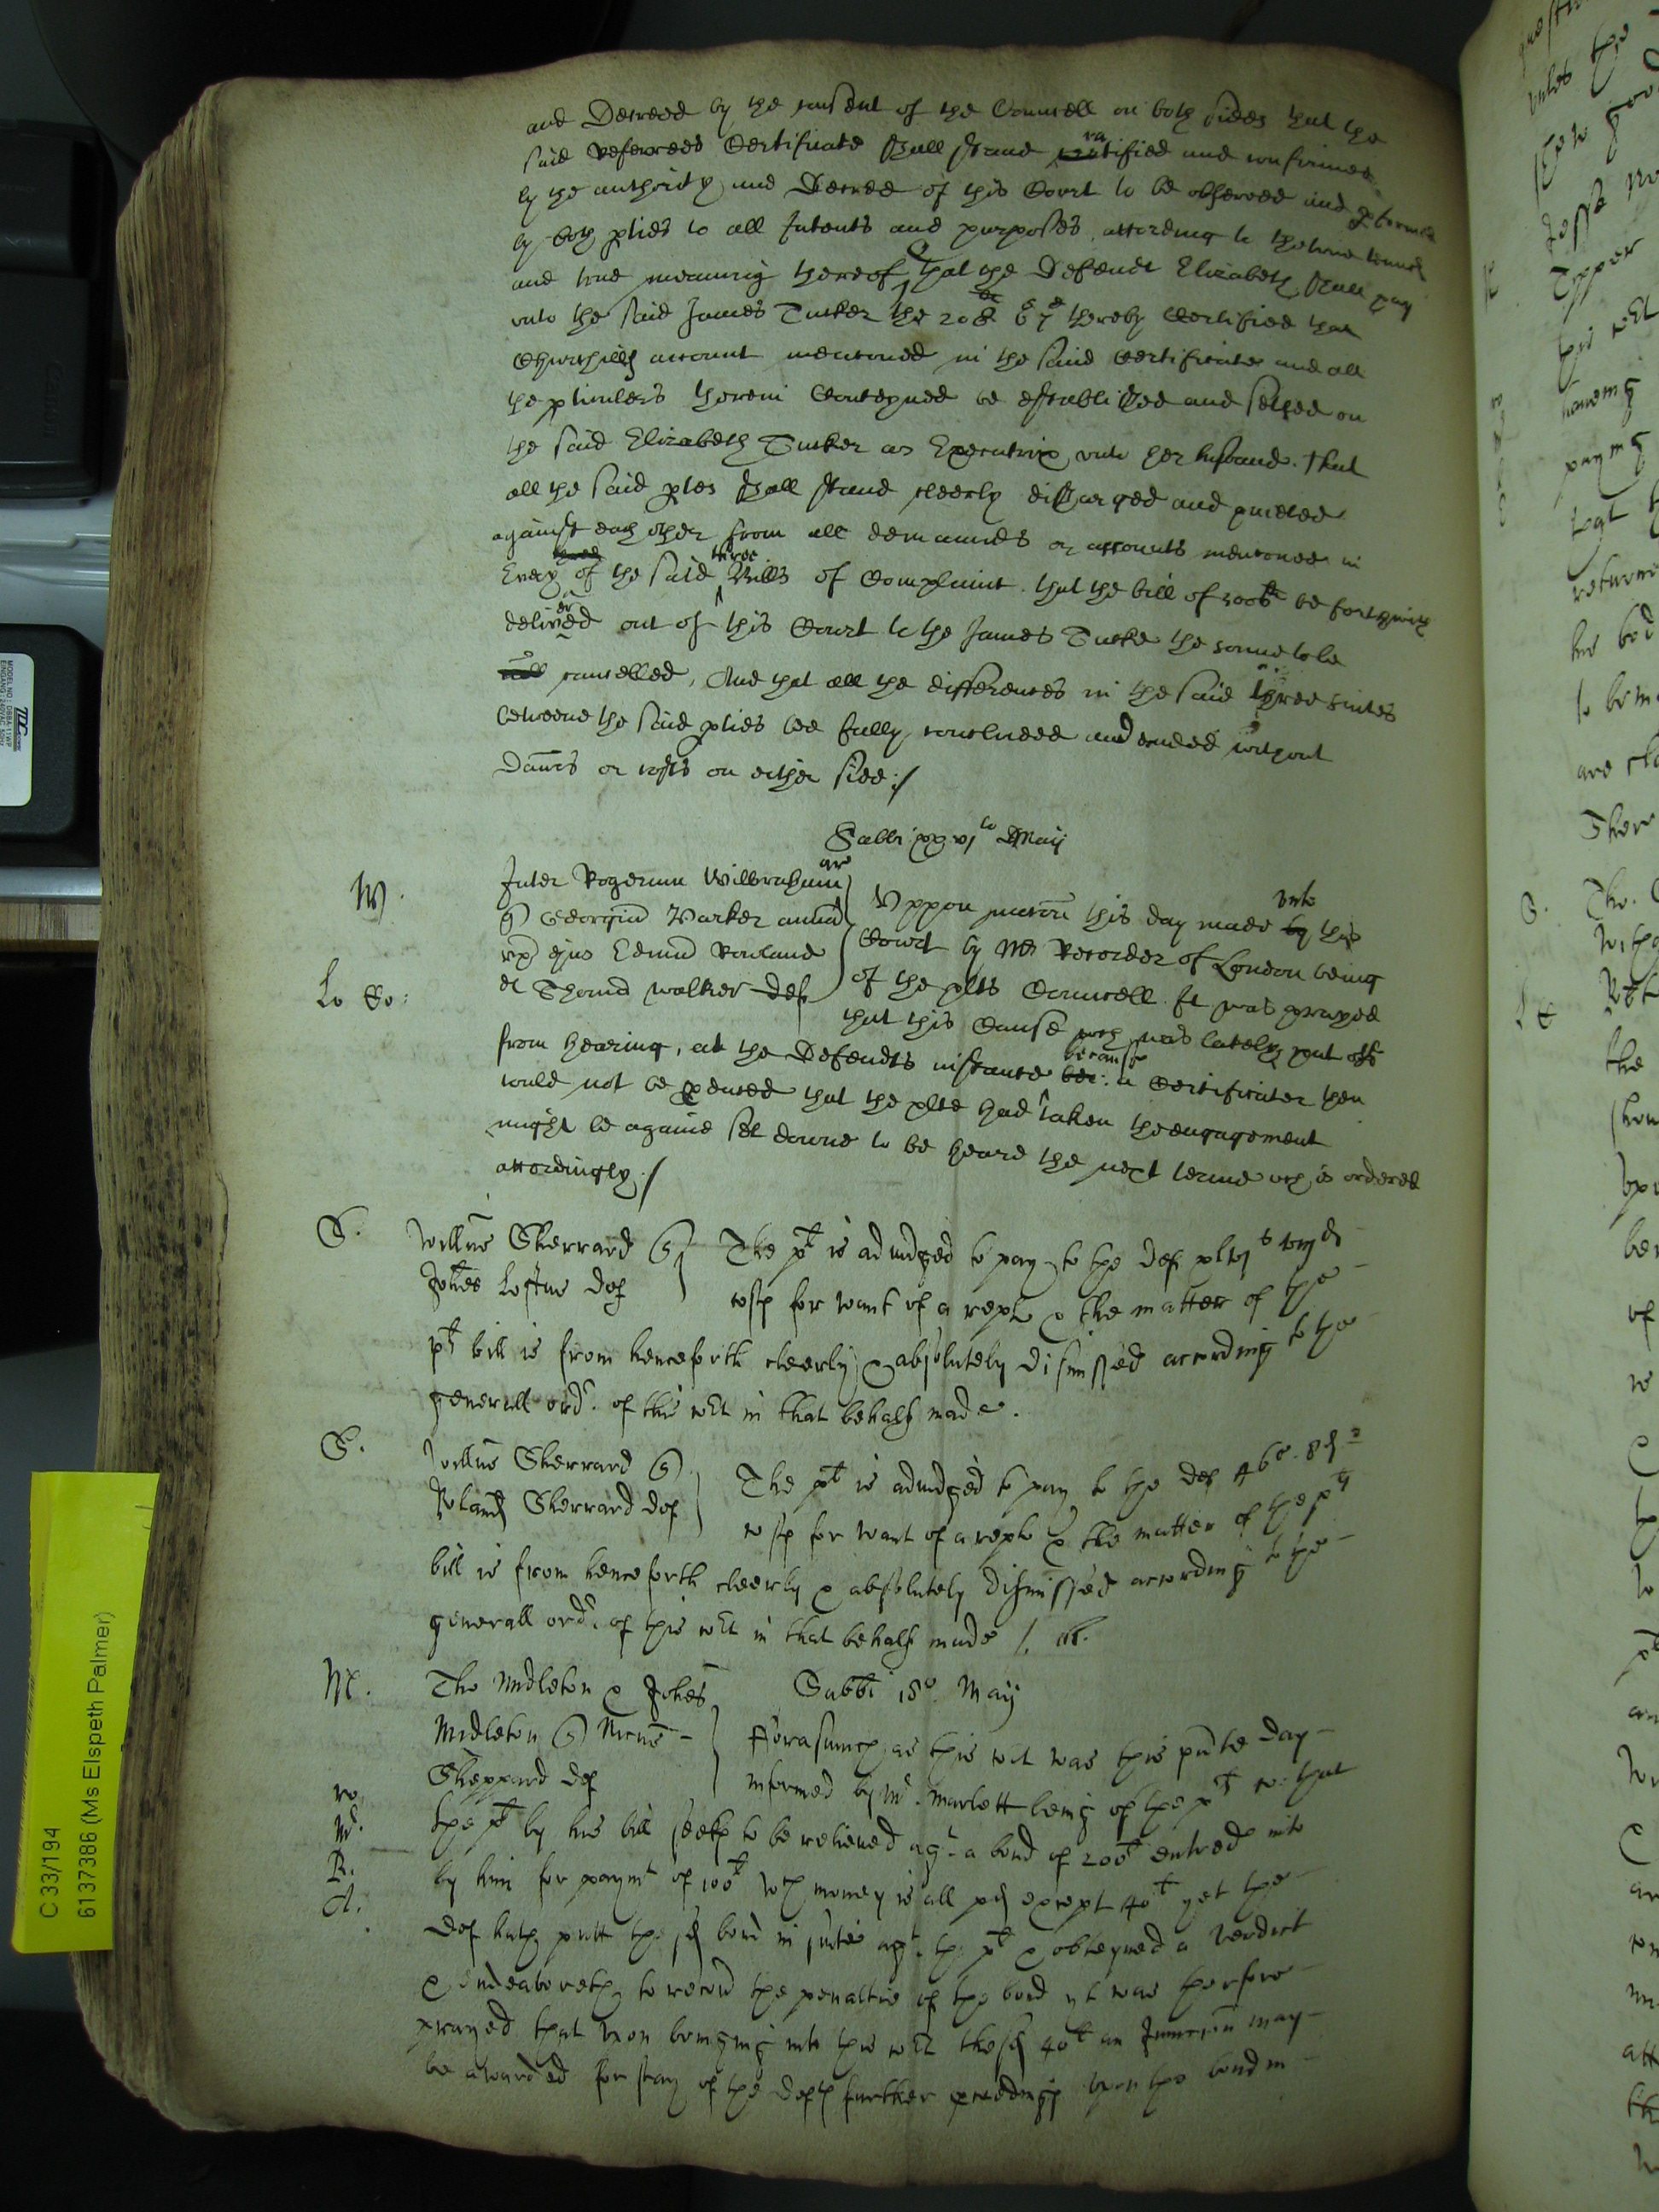 and Decreed by the consent of the Councell on both sides that the
said Referrees Certificate shall stand ratified and confirmed
by the authority and Decree of this Court to be observed and performed
by both pties to all Intents and purposes, according to the true
and true meaning thereof that the Defendt Elizabeth shall pay
unto the said James Tucker the 20 6 7 thereby Certified that
account mentoned in the said Certificate and all
the pticulers therein Conteyned be established and setled on
the said Elizabeth Tucker as Executrix unto her husband. that
all the said pties shall stand cleerly discharged and quieted
against each other from all demaunds or accounts mentoned in
Every of the said three Bills of Complaint. that the bill of be forthwith
delivered out of this Court to the James Tucke the same to be
cancelled, And that all the differences in the said three suites
betweene the said pties bee fully concluded and ended without
or costs on either side:/
Sabbi xxvj to Maij
W. Inter Rogerum Wilbraham ar
Georgiu Barker
ux ejus Edmu Rowland
Lo Co: et Thomā walker def
Uppon motion this day made unto this
Court by Mr Recorder of London being
of the plts Councell It was prayed
that this Cause wch was lately put off
from hearing, at the Defendts instance because a Certificate then
could not be pduced that the plte had taken the engagement
might be againe set downe to be heard the next terme wch is ordered
accordingly./
S. Willms Sherrard
Johes Loftus def
The pt is adiudged to pay to the def
costs for want of a repl & the matter of the
pts bill is from henceforth cleerly & absolutely dismissed according to the
generall ordr. of this Cot in that behalf made.
S. Willms Sherrard
Sherrard def
The pt is adiudged to pay to the def 46s. 8d
costs for want of a repl & the matter of the pts
bill is from henceforth cleerly & absolutely dismissed according to the
generall ordr. of this Cot in that behalf made /.
M. Tho Midleton & Johes Sabbi 18o. Maij
Midleton
Sheppard def
fforasmuch as this Cot was this pnte day
informed by Mr. Marlett being of the pts Co: that
the pt by his bill seeks to be relieved agt a bond of 200l entred into
by him for paymt of 100l wch money is all pd except 40l yet the
def hath putt the sd bond in suite agt. the pt & obteyned a Verdict
& indeavoreth to recovr the penaltie of the bond yt was therfore
prayed that upon bringing into this Cot the sd 40l an Iniuncion may
be awarded for stay of the defts further pceedings upon the bond in
C 33/194
6137386 (Ms Elspeth Palmer)